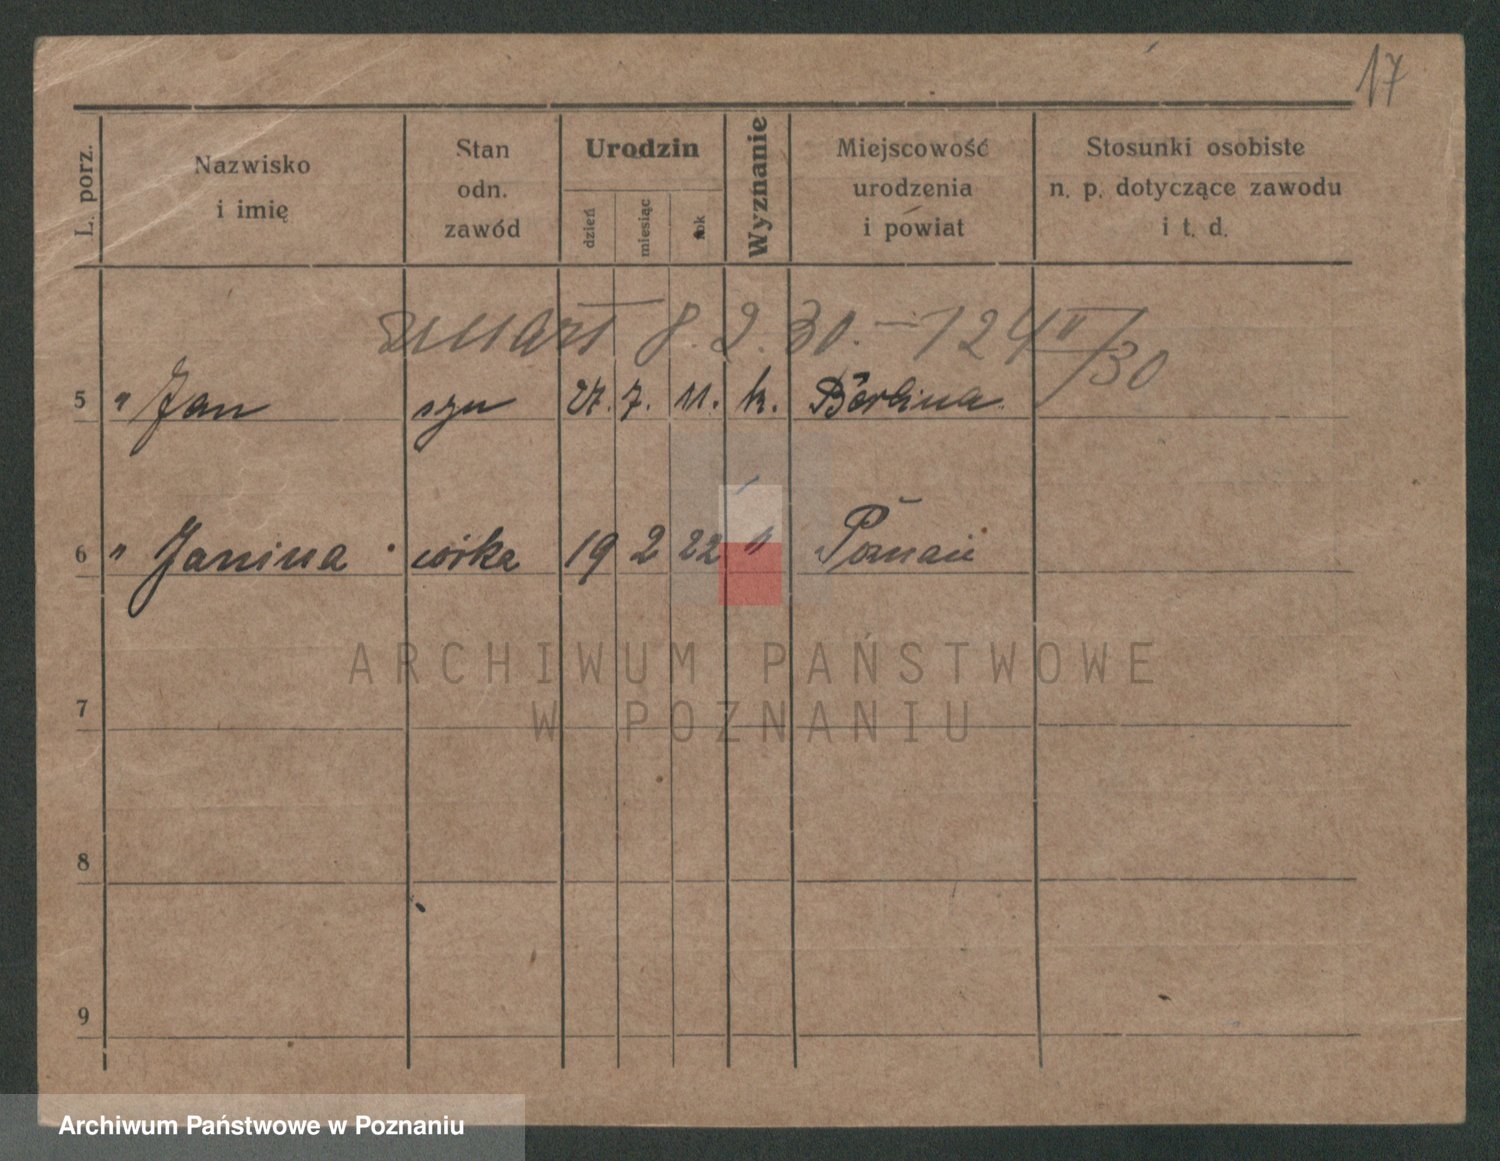 17
L. porz.
Nazwisko
i imię
Stan
odn.
zawód
Urodzin
dzień
miesiąc
rok
Wyznanie
Miejscowość
urodzenia
i powiat
Stosunki osobiste
n. p. dotyczące zawodu
i t. d.
zmarł 8.2.30. — 124 II/30
5 " Jan syn 27. 7. 11. k. Berlina
6 " Janina córka 19 2 22 " Poznań
7
8
9
ARCHIWUM PAŃSTWOWE
W POZNANIU
Archiwum Państwowe w Poznaniu